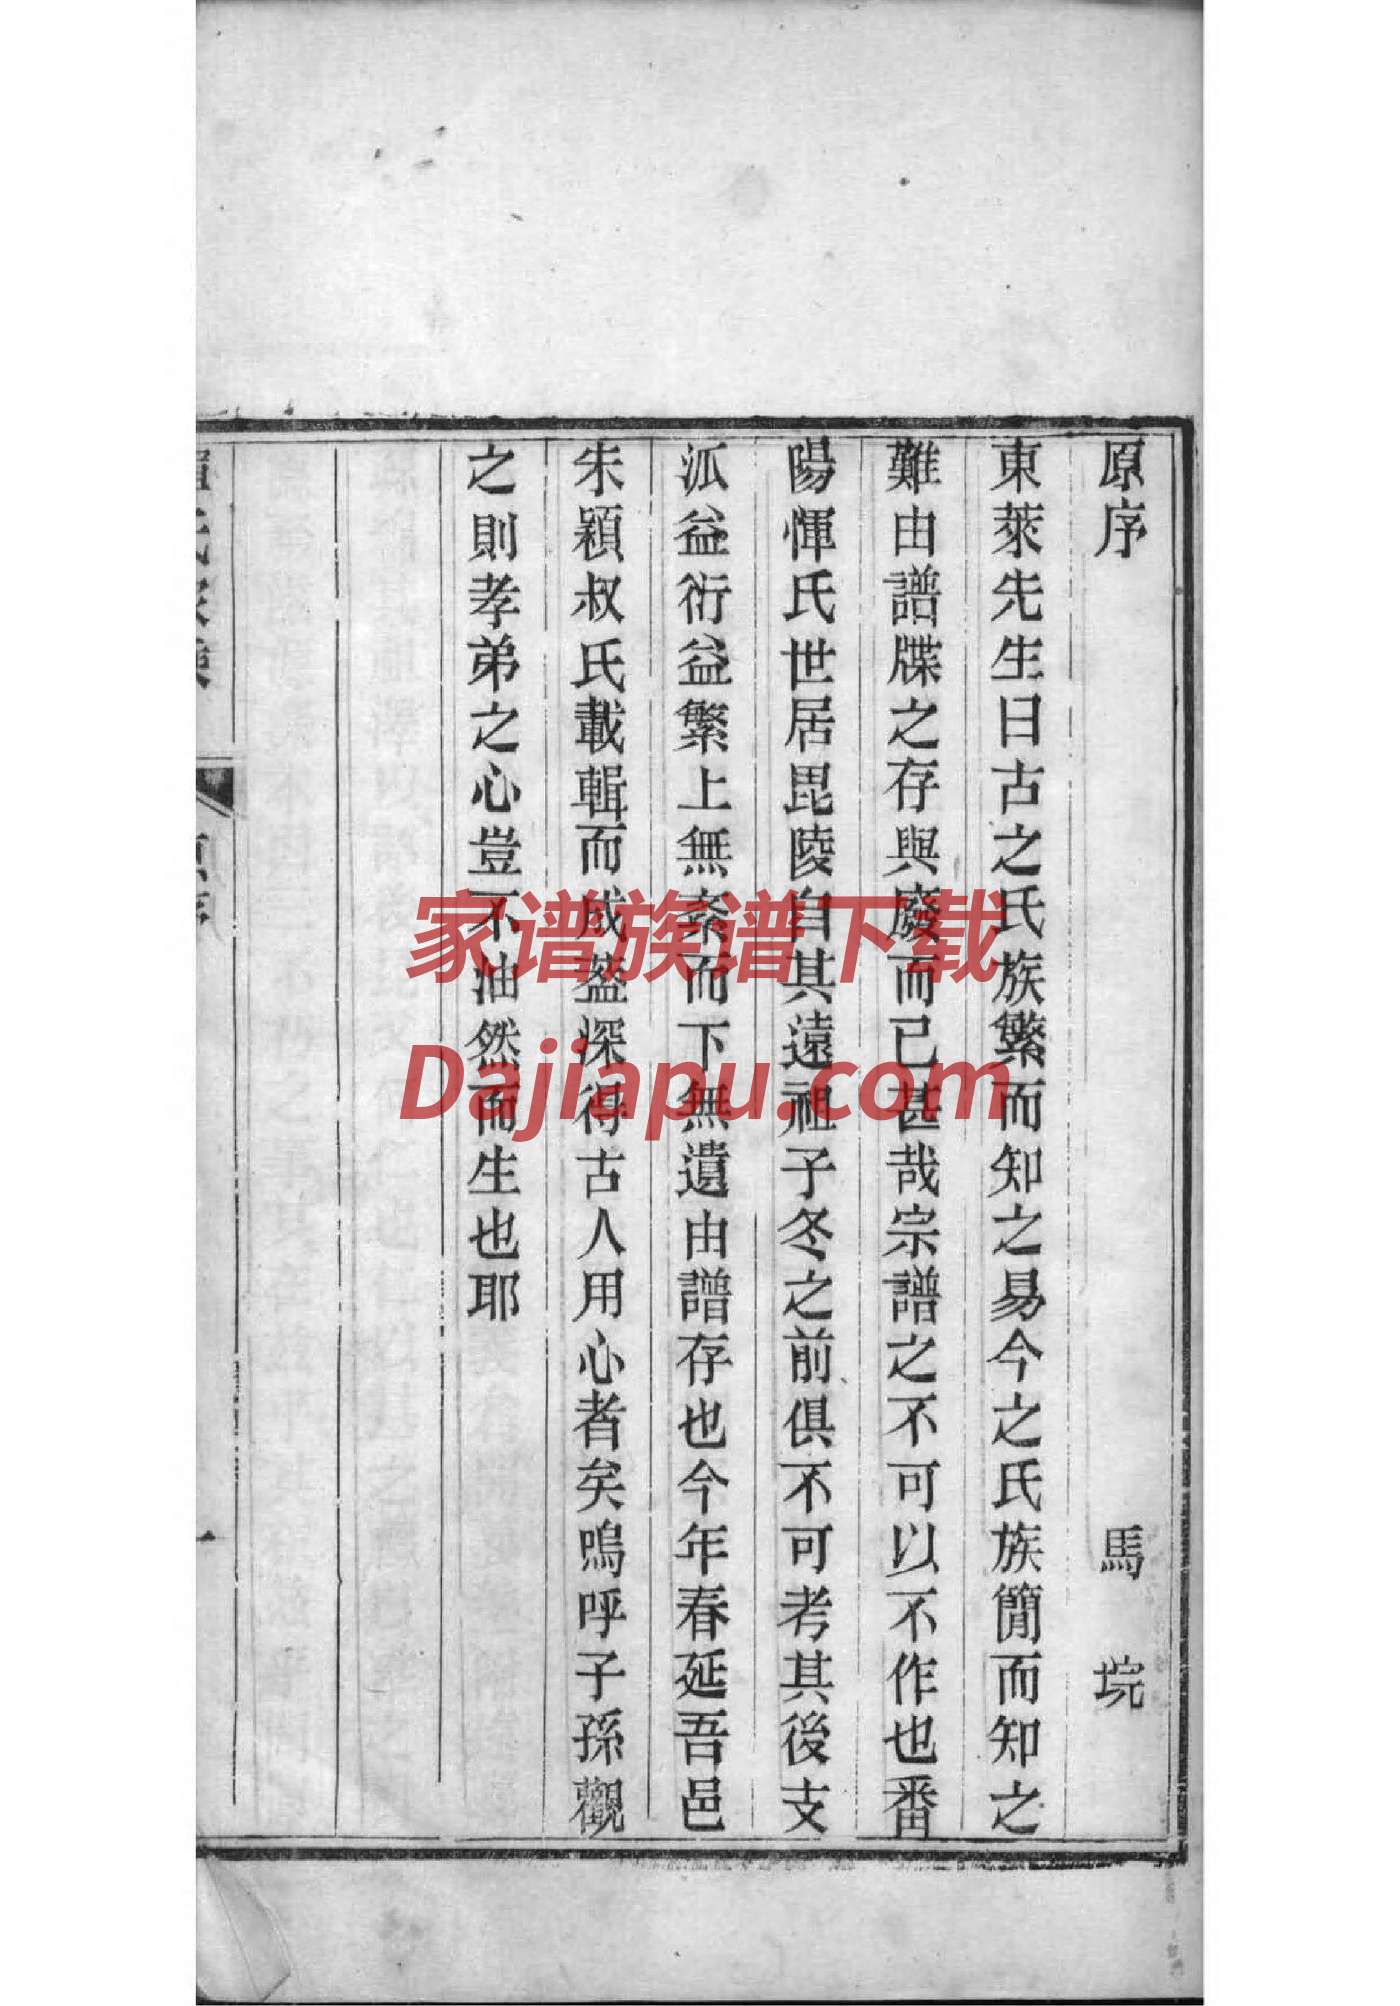 原序
馬垸
東萊先生曰古之氏族繁而知之易今之氏族簡而知之
難由譜牒之存與廢而已甚哉宗譜之不可以不作也番
陽惲氏世居毘陵自其遠祖子冬之前俱不可考其後支
派益衍益繁上無紊而下無遺由譜存也今年春延吾邑
朱穎叔氏載輯而成葢深得古人用心者矣嗚呼子孫觀
之則孝弟之心豈不油然而生也耶
家谱族谱下载
Dajiapu.com
一